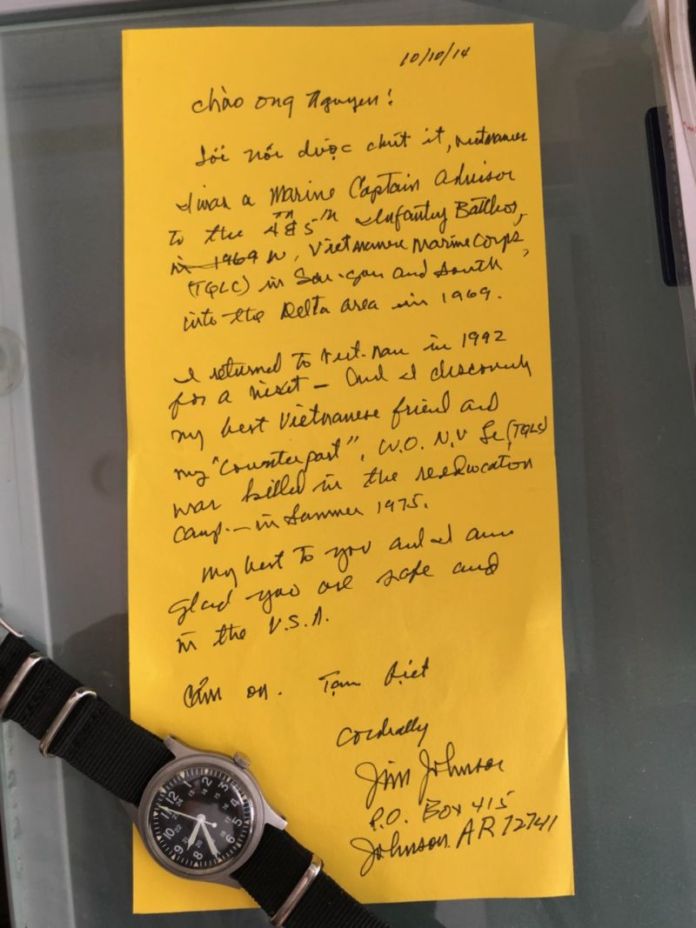 10/10/14
Chào ong Nguyen!
Tôi nói được chút ít, Vietnamese
I was a Marine Captain Advisor
to the 4th & 5th Infantry Battlion,
in 1969 N, Vietnamese Marine Corps,
(TQLC) in Sai-gon and South
into the Delta area in 1969.
I returned to Viet-Nam in 1992
for a visit – And I discovered
my best Vietnamese friend and
my "counterpart", W.O. N.V Le, (TQLC)
was killed in the reeducation
camp – in Summer 1975.
My best to you and I am
glad you are safe and
in the U.S.A.
Cảm on. Tạm Biet
Cordially
Jim Johnson
P.O. Box 415
Johnson AR 72741
12
1
2
3
4
5
7
8
9
10
11